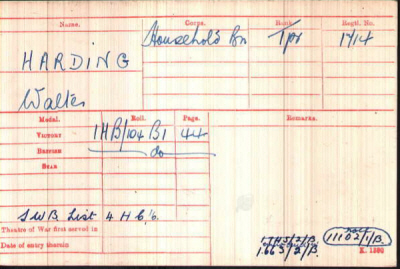 Name. Corps. Rank. Regtl. No.
HARDING Household Bn Tpr 1714
Walter
Medal. Roll. Page. Remarks.
VICTORY 1HB/104 B1 44
BRITISH do
STAR
SWB List 4 H C/6.
Theatre of War first served in
Date of entry therein K. 1380